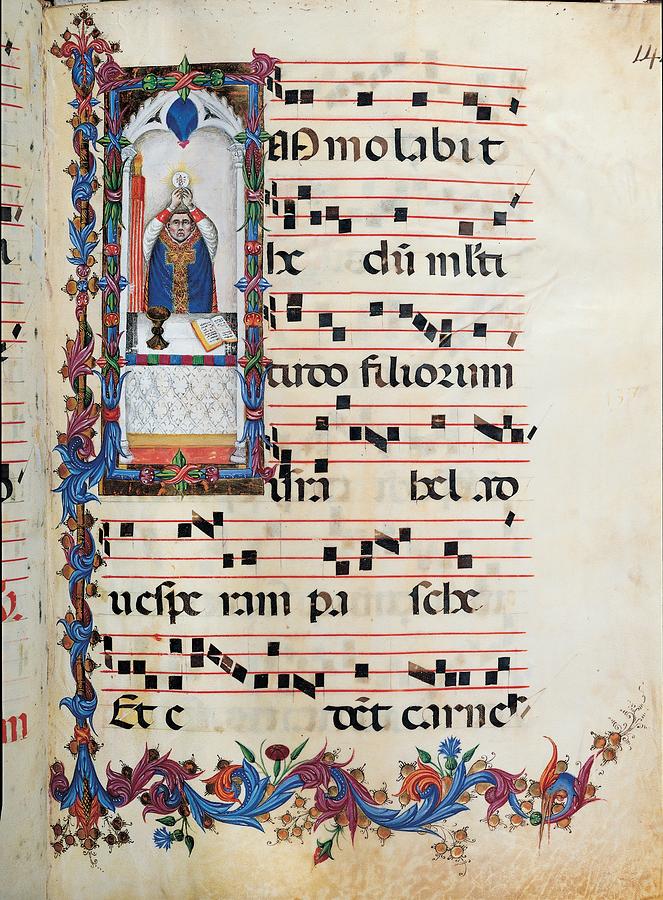 mmolabit
he dũ mlti
tudo filiorum
isra hel ad
uespe ram pa sche
Et e det carnes